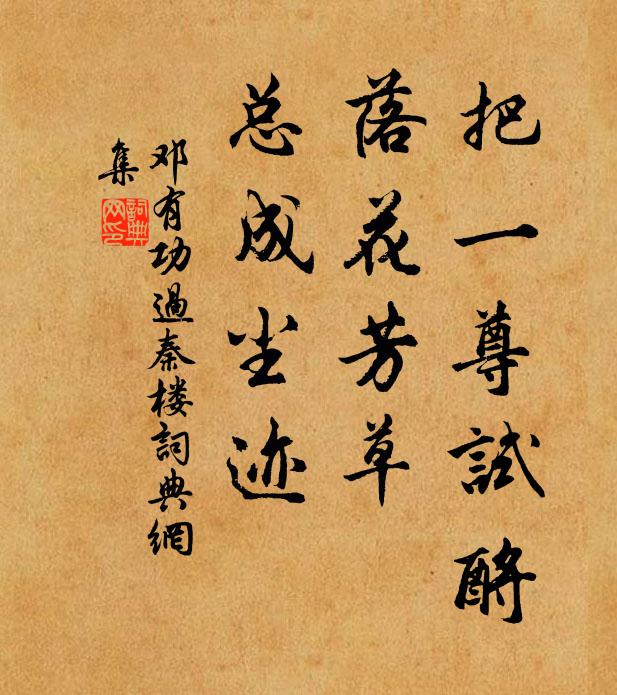 把一尊試酹
落花芳草
总成尘迹
邓有功過秦楼詞典網
集
詞典
网印